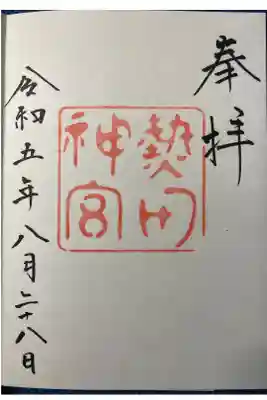 奉拝
熱田
神宮
令和五年八月二十八日